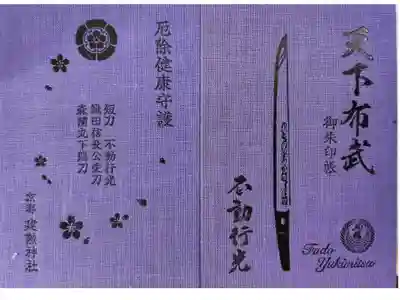 天下布武
御朱印帳
Fudo
Yukimitsu
不動行光
厄除健康守護
短刀 不動行光
織田信長公愛刀
森蘭丸下賜刀
京都 建勲神社